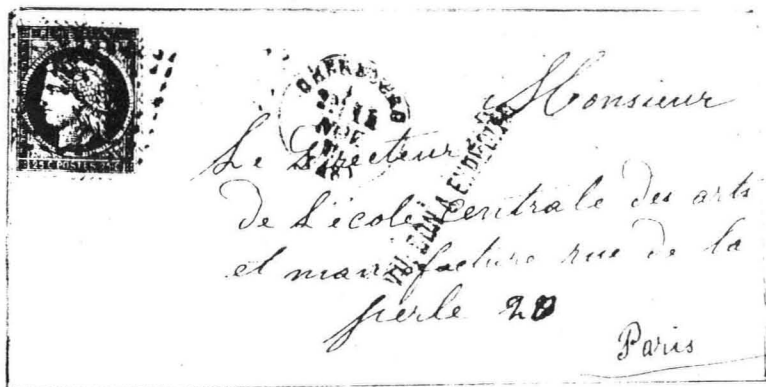 CHERBOURG
NOV.
Monsieur
Le Directeur
De L'école centrale des arts
et manufacture rue de la
perle 20
Paris